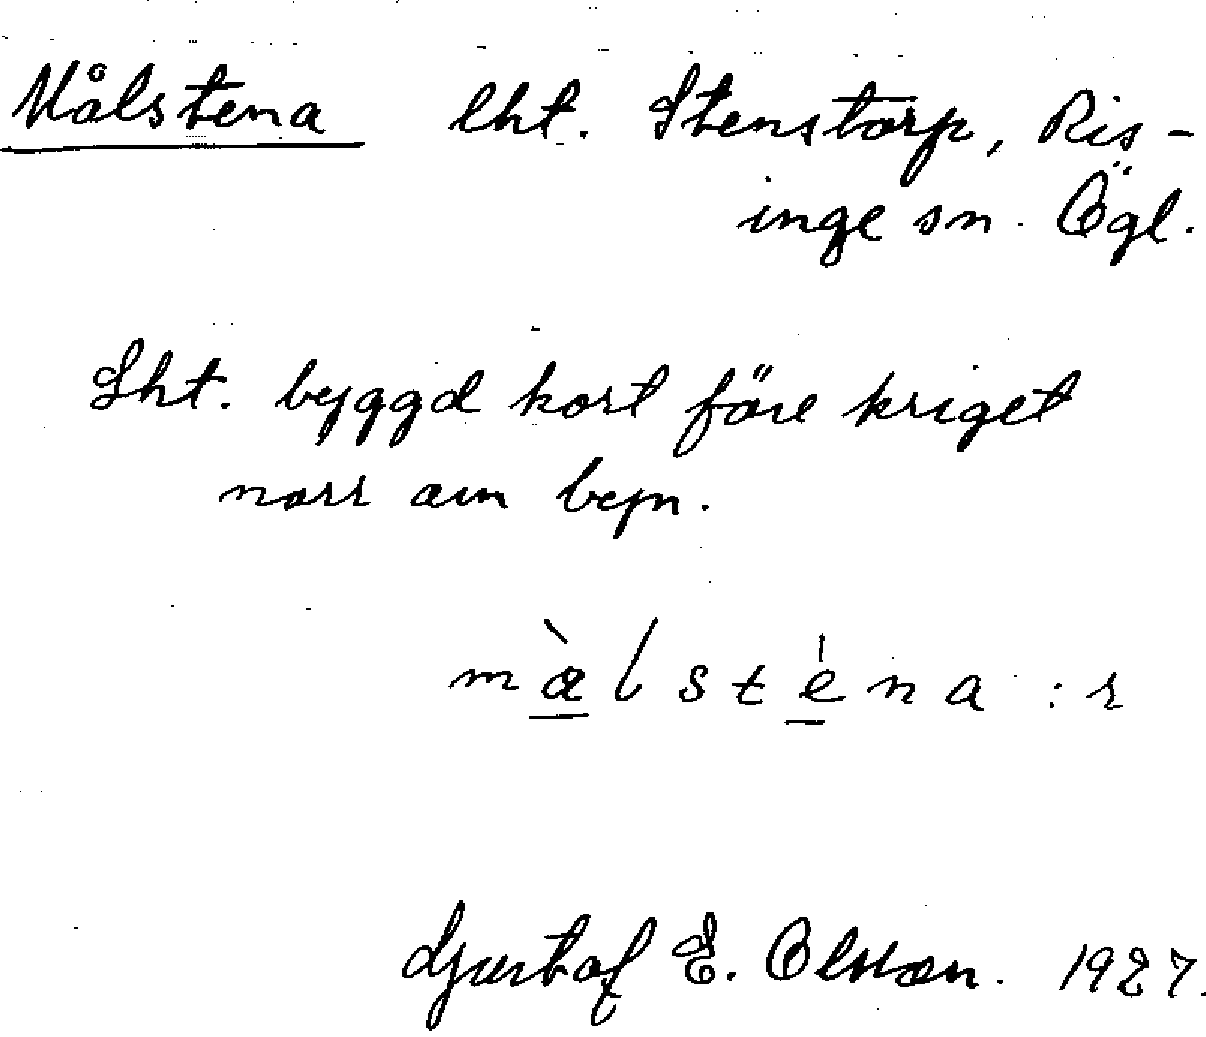 Målstena lht. Stenstorp, Ris-
inge sn. Ögl.
Lht. byggd kort före kriget
norr om byn.
màlsténa :r
Gustaf E. Olsson. 1927.